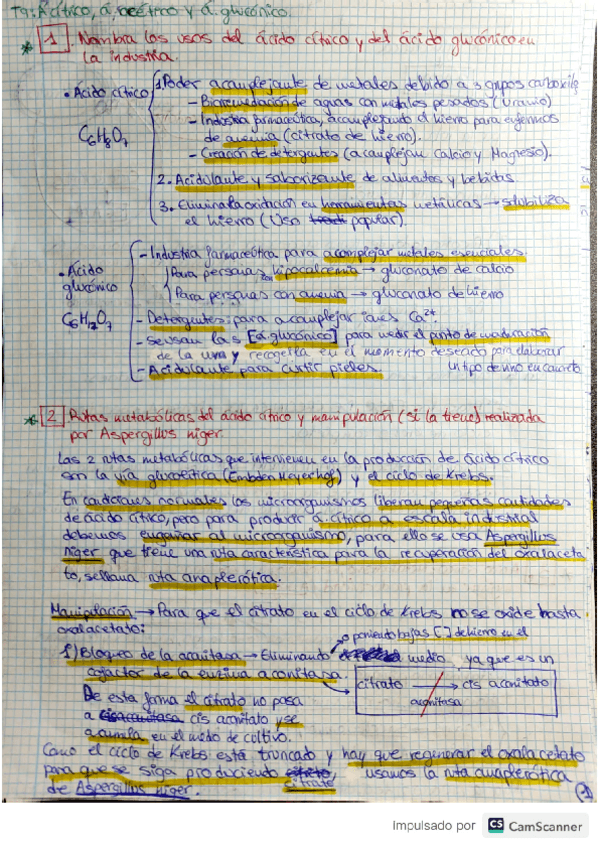 T9: A. cítrico, á. acético y á. glucónico.
* 1. Nombra los usos del ácido cítrico y del ácido glucónico en
la industria.
• Ácido cítrico
C6H8O7
1. Poder acomplejante de metales debido a 3 grupos carboxilo
- Biorremediación de aguas con metales pesados (Uranio)
- Industria farmacéutica, acomplejando el hierro para enfermos
de anemia (citrato de hierro).
- Creación de detergentes (acomplejan Calcio y Magnesio).
2. Acidulante y saborizante de alimentos y bebidas
3. Elimina la oxidación en herramientas metálicas → estabiliza
el hierro (Uso popular)
• Ácido
glucónico
C6H12O7
- Industria farmacéutica para acomplejar metales esenciales.
Para personas con hipocalcemia → gluconato de calcio
Para personas con anemia → gluconato de hierro
- Detergentes: para acomplejar iones Ca2+
- se usan las [á. glucónico] para medir el punto de maduración
de la uva y recogerla en el momento deseado para elaborar
un tipo de vino en concreto
- Acidulante para curtir pieles.
* 2. Rutas metabólicas del ácido cítrico y manipulación (si la tiene) realizada
por Aspergillus niger.
Las 2 rutas metabólicas que intervienen en la producción de ácido cítrico
son la vía glucolítica (Embden Meyerhof) y el ciclo de Krebs.
En condiciones normales los microorganismos liberan pequeñas cantidades
de ácido cítrico, pero para producir á. cítrico a escala industrial
debemos engañar al microorganismo, para ello se usa Aspergillus
Niger que tiene una ruta característica para la recuperación del oxalaceta
to, se llama ruta anaplerótica.
Manipulación → Para que el citrato en el ciclo de Krebs no se oxide hasta
oxalacetato:
poniendo bajas [ ] de hierro en el
1) Bloqueo de la aconitasa → Eliminando medio ya que es un
cofactor de la enzima aconitasa.
citrato → cis aconitato
aconitasa
De esta forma el citrato no pasa
a cis aconitato y se
acumula en el medio de cultivo.
Como el ciclo de Krebs está truncado y hay que regenerar el oxalacetato
para que se siga produciendo citrato, usamos la ruta anaplerótica
de Aspergillus niger.
1
Impulsado por CS CamScanner